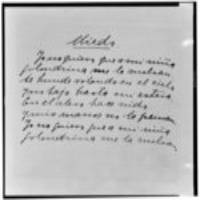 Miedo
Yo no quiero que a mi niña
golondrina me la vuelvan
se hunde volando en el cielo
baja hasta mi estera
en el alero hace nido
y mis manos no la peinan
Yo no quiero que a mi niña
golondrina me la vuelvan